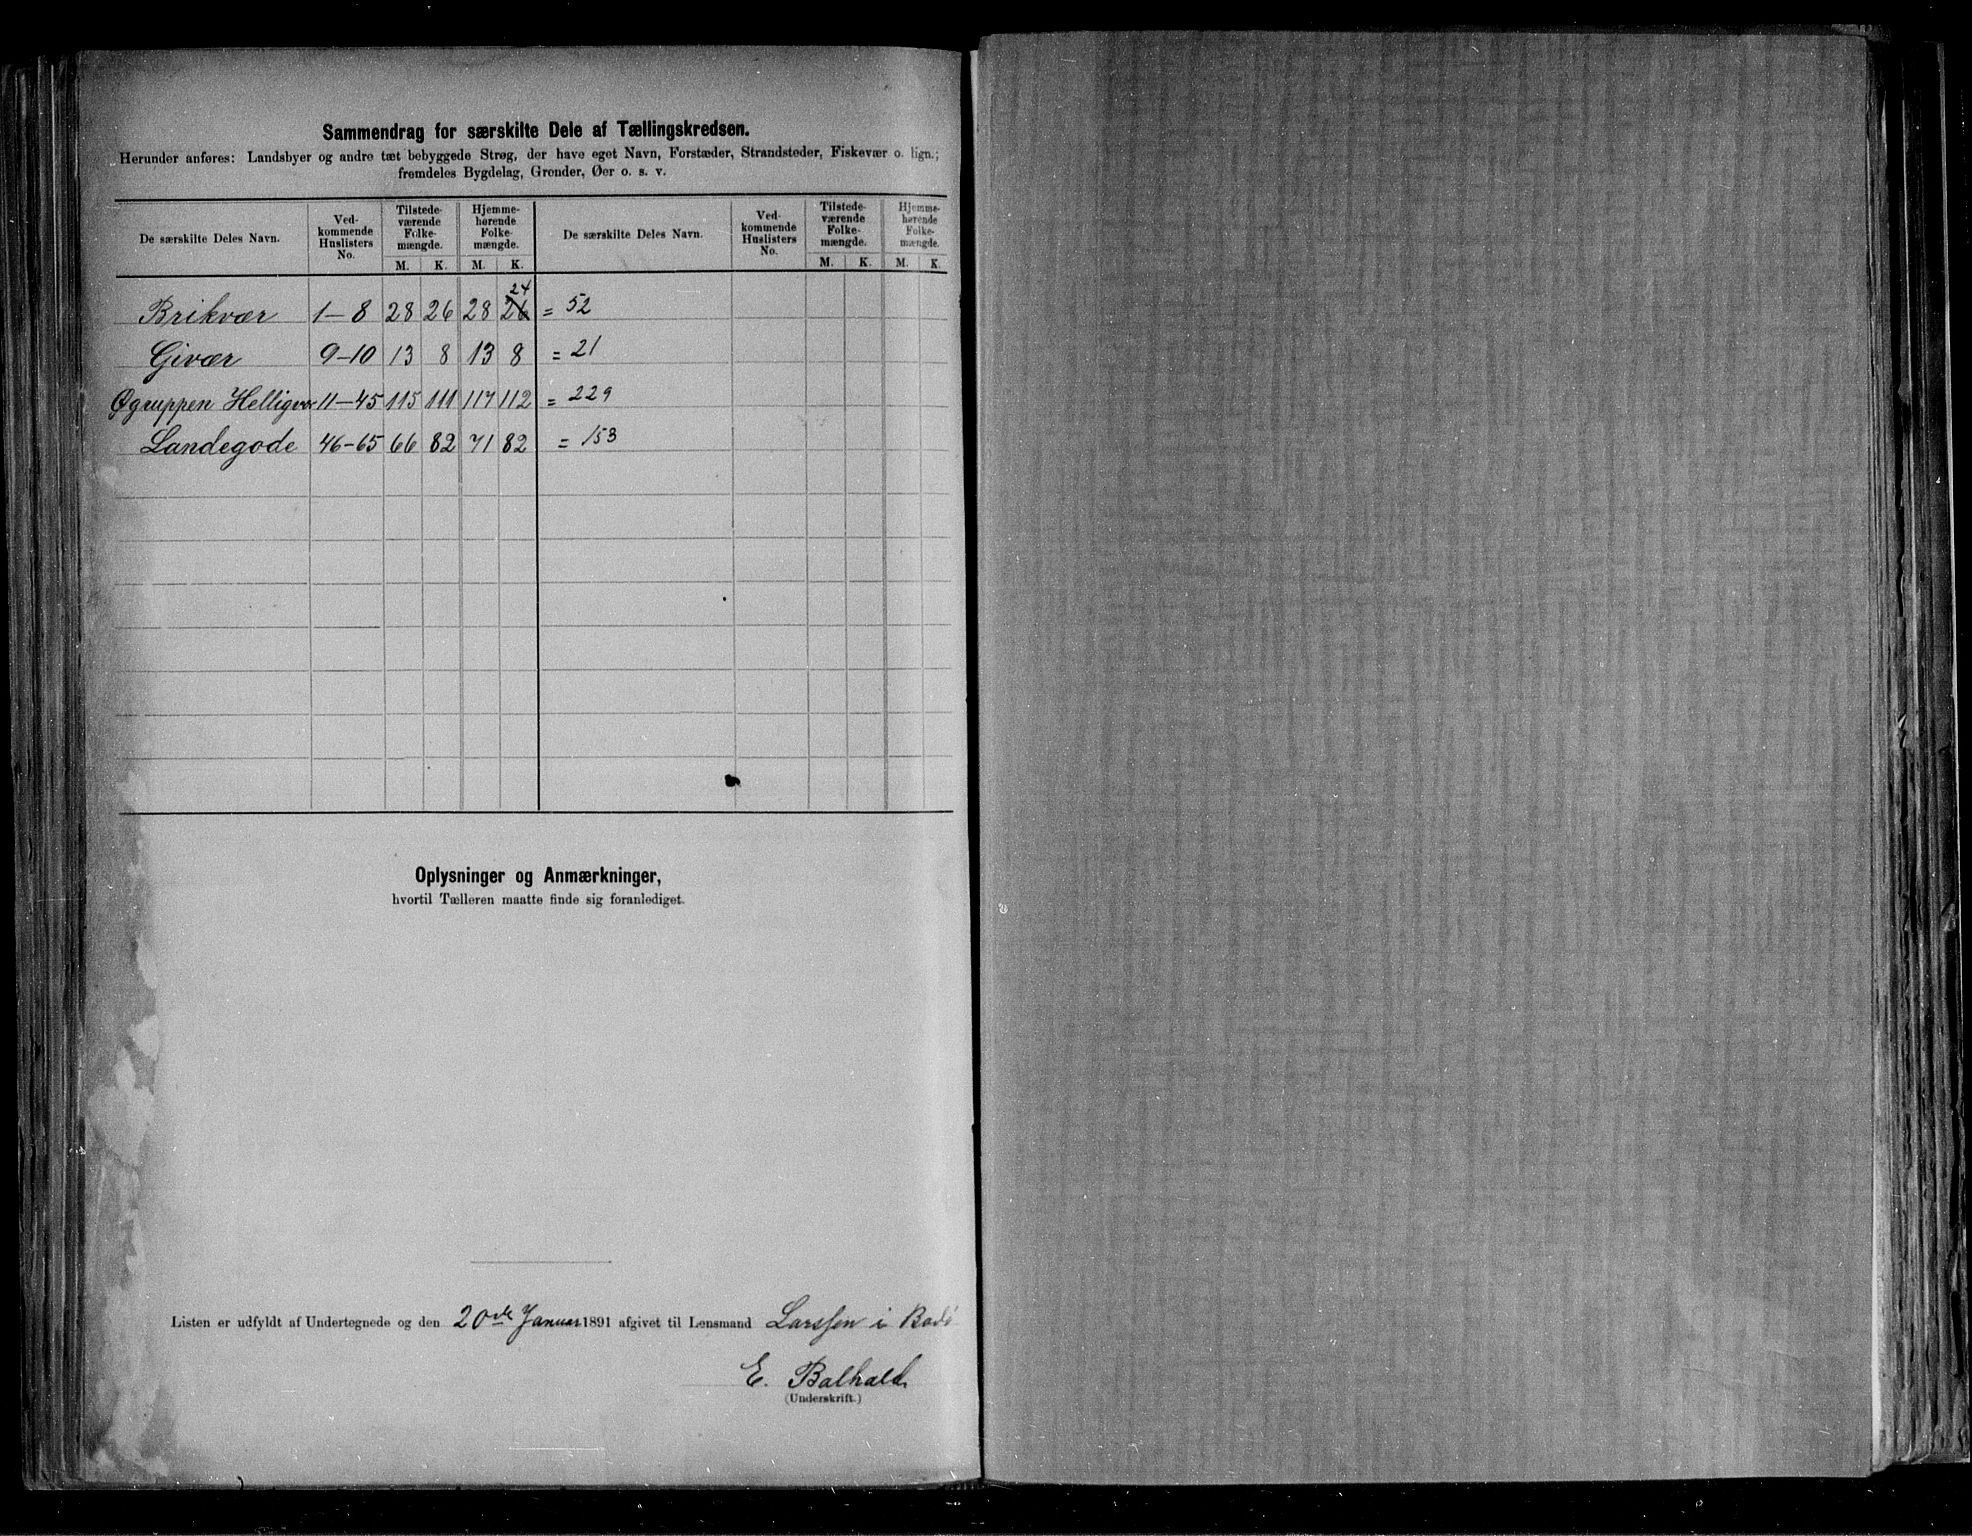 Sammendrag for særskilte Dele af Tællingskredsen.
Herunder anføres: Landsbyer og andre tæt bebyggede Strøg, der have eget Navn, Forstæder, Strandsteder, Fiskevær o. lign.;
fremdeles Bygdelag, Grender, Øer o. s. v.
De særskilte Deles Navn. Ved-kommende Huslisters No. Tilstede-værende Folke-mængde. Hjemme-hørende Folke-mængde. De særskilte Deles Navn. Ved-kommende Huslisters No. Tilstede-værende Folke-mængde. Hjemme-hørende Folke-mængde.
M. K. M. K. M. K. M. K.
24
Brikvær 1-8 28 26 28 26 = 52
Givær 9-10 13 8 13 8 = 21
Øgruppen Helligvær 11-45 115 111 117 112 = 229
Landegode 46-65 66 82 71 82 = 153
Oplysninger og Anmærkninger,
hvortil Tælleren maatte finde sig foranlediget.
Listen er udfyldt af Undertegnede og den 20de Januar 1891 afgivet til Lensmand Larssen i Bodø
E. Balhald
(Underskrift.)